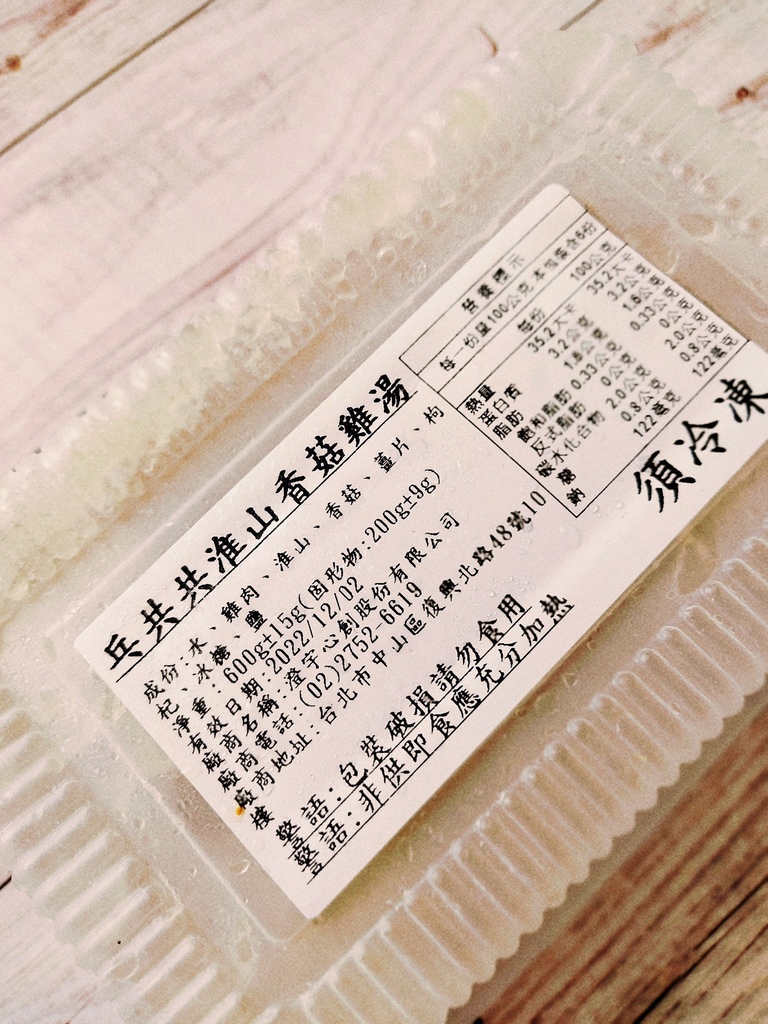 兵共共淮山香菇雞湯
成份:水、雞肉、淮山、香菇、薑片、枸
杞、冰糖、鹽
淨重:600g±15g(固形物:200g±9g)
有效日期:2022/12/02
廠商名稱:澄宇心創股份有限公司
廠商電話:(02)2752-6619
廠商地址:台北市中山區復興北路48號10
樓
警語:包裝破損請勿食用
警語:非供即食應充分加熱
營養標示
每一份量100公克 本包裝含6份
每份 100公克
熱量 35.2大卡 35.2大卡
蛋白質 3.2公克 3.2公克
脂肪 1.6公克 1.6公克
飽和脂肪 0.33公克 0.33公克
反式脂肪 0公克 0公克
碳水化合物 2.0公克 2.0公克
糖 0.8公克 0.8公克
鈉 122毫克 122毫克
須冷凍